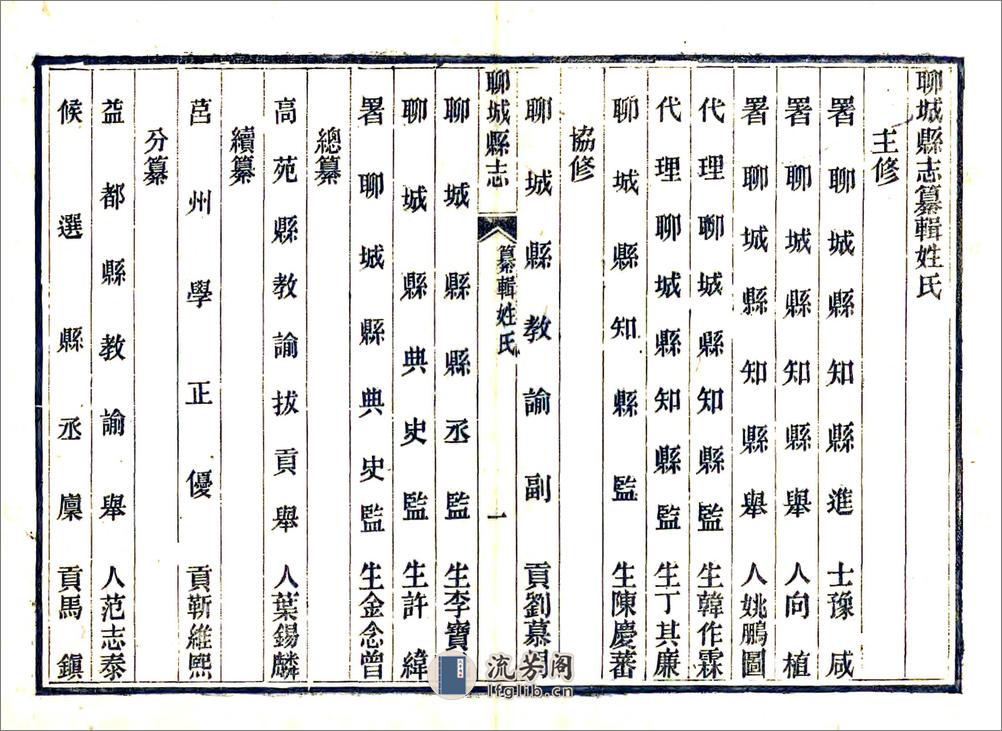 聊城縣志纂輯姓氏
主修
署聊城縣知縣進士豫咸
署聊城縣知縣舉人向植
署聊城縣知縣舉人姚鵬圖
代理聊城縣知縣監生韓作霖
代理聊城縣知縣監生丁其廉
聊城縣知縣監生陳慶蕃
協修
聊城縣教諭副貢劉慕
聊城縣志 纂輯姓氏 一
聊城縣縣丞監生李寶
聊城縣典史監生許緯
署聊城縣典史監生金念曾
總纂
高苑縣教諭拔貢舉人葉錫麟
續纂
莒州學正優貢靳維熙
分纂
益都縣教諭舉人范志泰
候選縣丞廩貢馬鎮
流芳阁
lfglib.cn